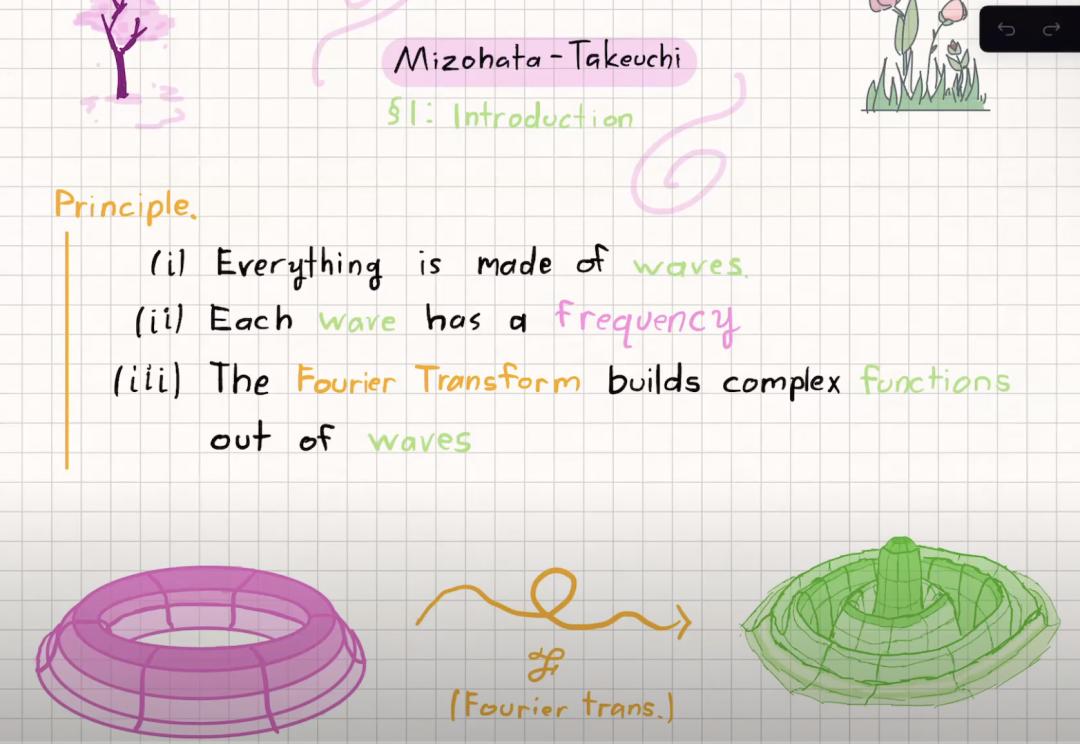 Mizohata-Takeuchi
§1: Introduction
Principle.
(i) Everything is made of waves.
(ii) Each wave has a frequency
(iii) The Fourier Transform builds complex functions
out of waves
ℱ
(Fourier trans.)